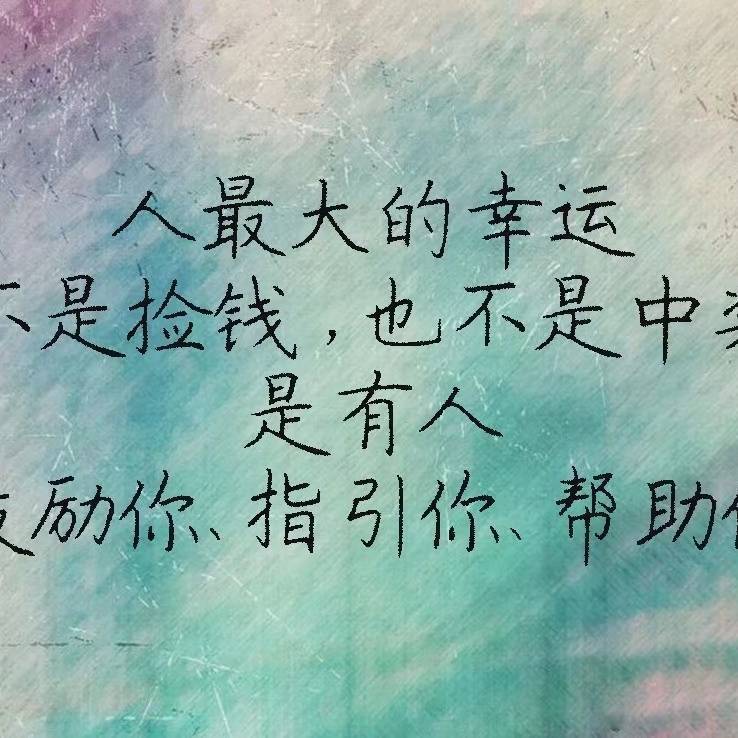 人最大的幸运
不是捡钱,也不是中奖
是有人
励你、指引你、帮助你